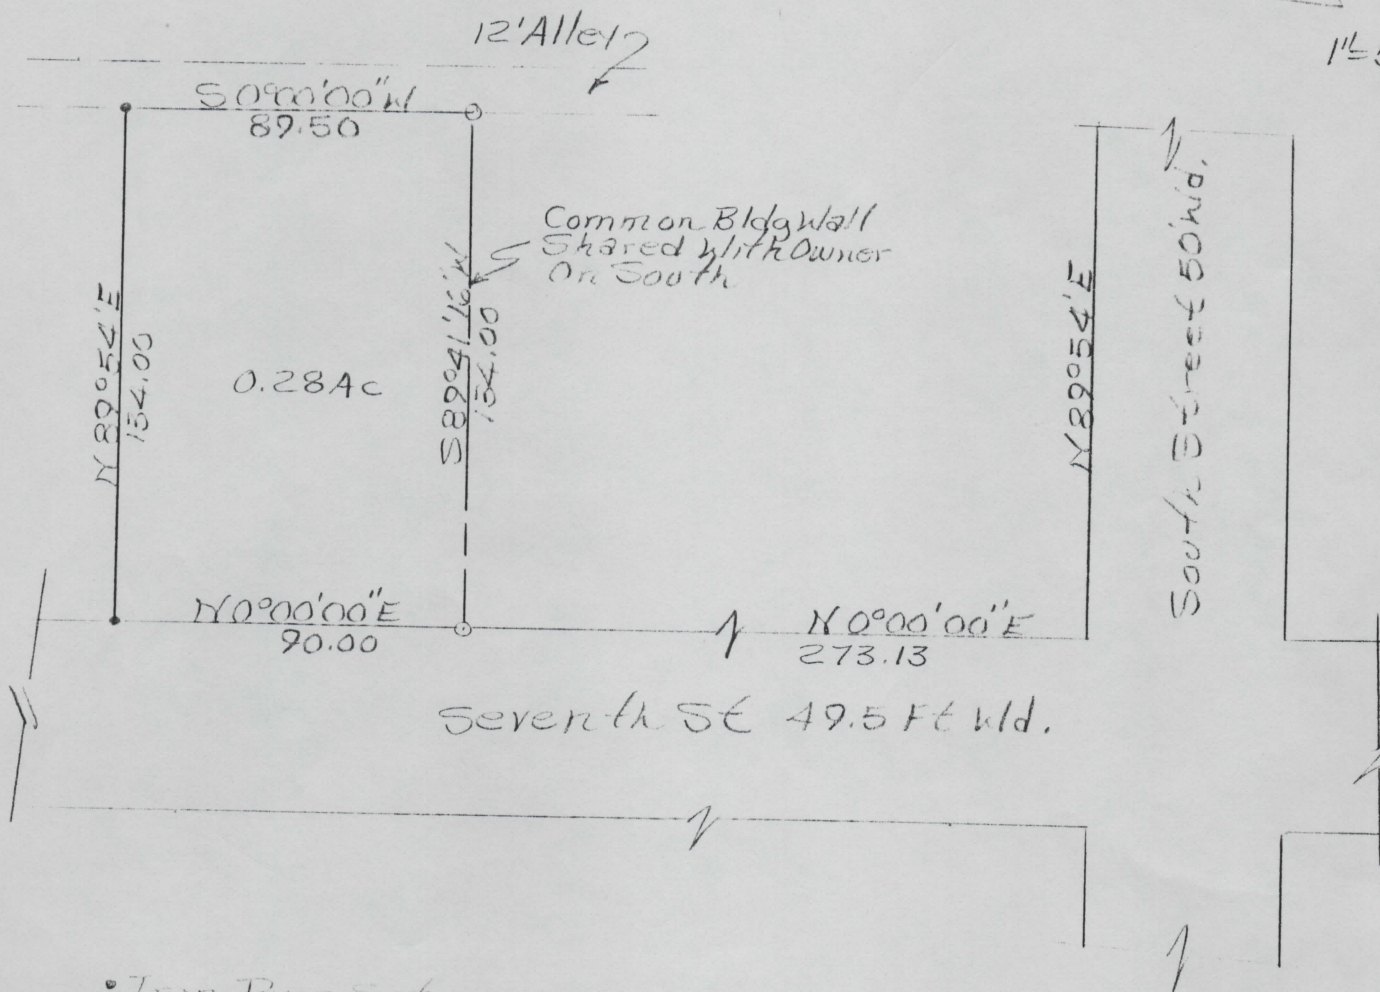 12' Alley
1"=5
S 0°00'00" W
89.50
Common Bldg Wall
Shared With Owner
On South
N 89°54' E
154.00
0.28 Ac
S 89°41'16" W
154.00
N 89°54' E
South B Street 50' Wd.
N 0°00'00" E
90.00
N 0°00'00" E
273.13
Seventh St 49.5 Ft Wd.
Iron